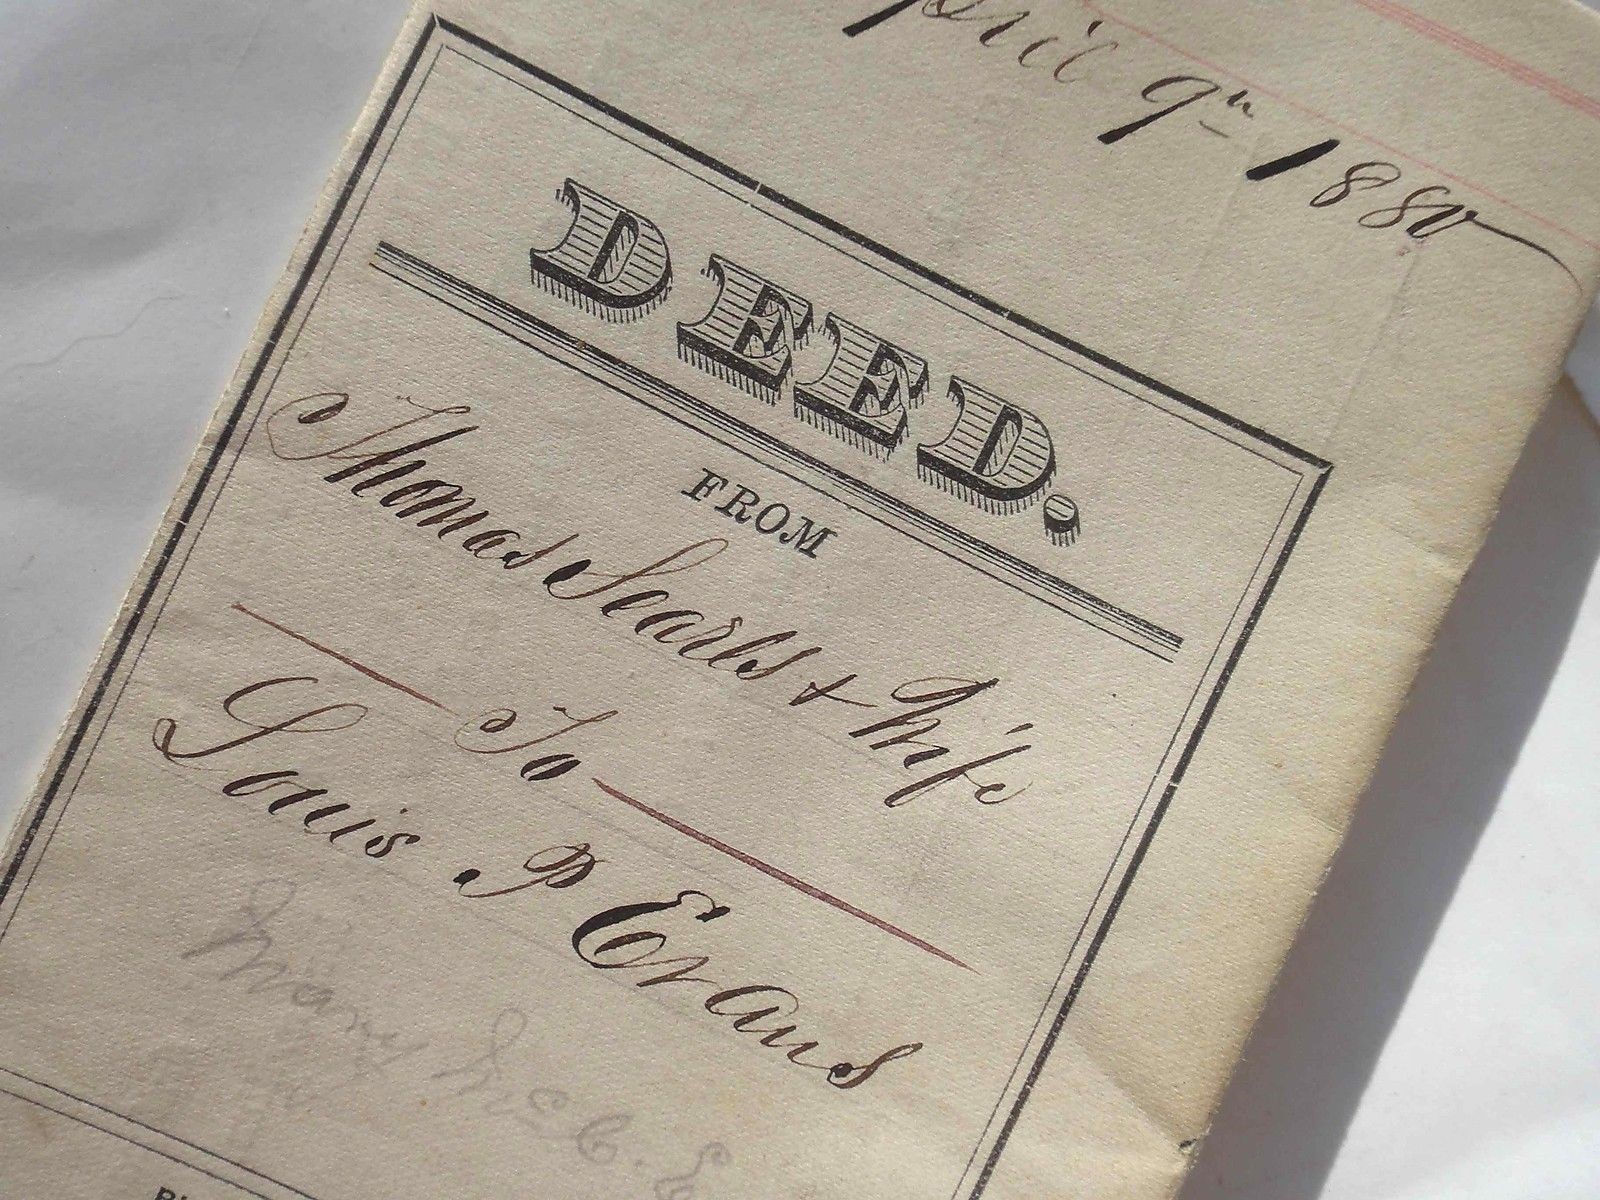 April 9th 1880
DEED.
FROM
Thomas Searls & Wife
To
Louis P Evans
Mary